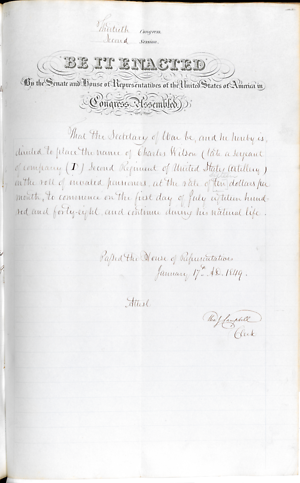 Thirtieth Congress
Second Session
BE IT ENACTED
By the Senate and House of Representatives of the United States of America in
Congress Assembled,
That the Secretary of War be, and is hereby di-
rected to place the name of Charles Wilson (late a sergeant
of company (I) Second Regiment of United States Artillery)
on the roll of invalid pensioners, at the rate of ten dollars per
month, to commence on the first day of July eighteen hund-
red and forty-eight, and continue during his natural life.
Passed the House of Representatives
January 17th AD. 1849.
Attest
Tho J Campbell
Clerk